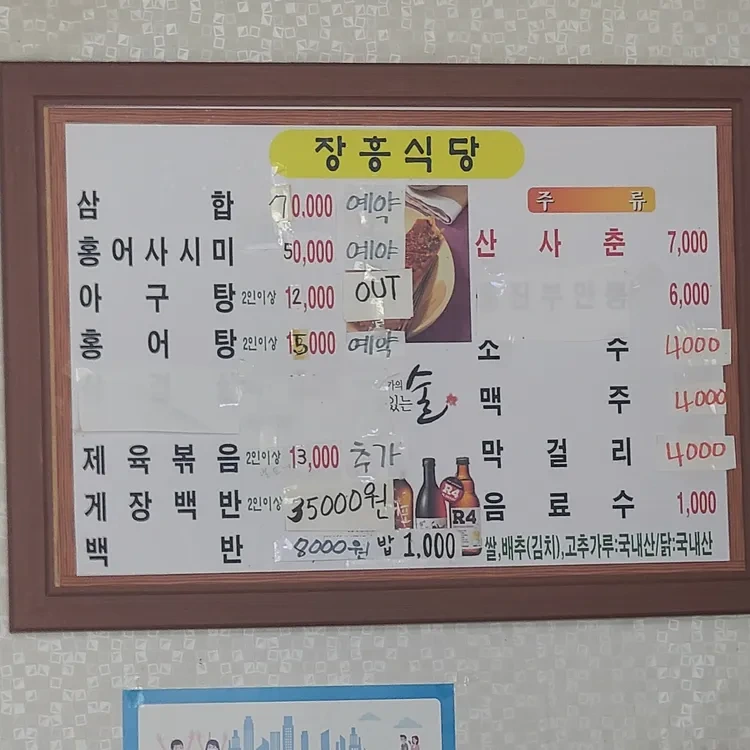 장흥식당
삼합 70,000 예약
홍어사시미 50,000 예약
아구탕 2인이상 12,000 OUT
홍어탕 2인이상 15000 예약
제육볶음 2인이상 13,000 추가
게장백반 2인이상 35000원
백반 8000원 밥 1,000
주류
산사춘 7,000
6,000
소수 4000
맥주 4000
막걸리 4000
음료수 1,000
있는 술
R4
R4
쌀,배추(김치),고추가루:국내산/닭:국내산